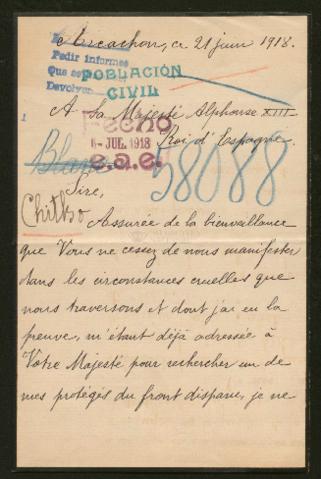 Arcachon, ce 21 juin 1918.
Pedir informes
Que se
Devolver
POBLACIÓN
CIVIL
A Sa Majesté Alphonse XIII
Roi d'Espagne.
Fecho
6- JUL. 1918
e.a.e.
58088
Sire,
Chitko
Assurée de la bienveillance
que Vous ne cessez de nous manifester
dans les circonstances cruelles que
nous traversons et dont j'ai eu la
preuve, m'étant déjà adressée à
Votre Majesté pour rechercher un de
mes protégés du front disparu, je ne